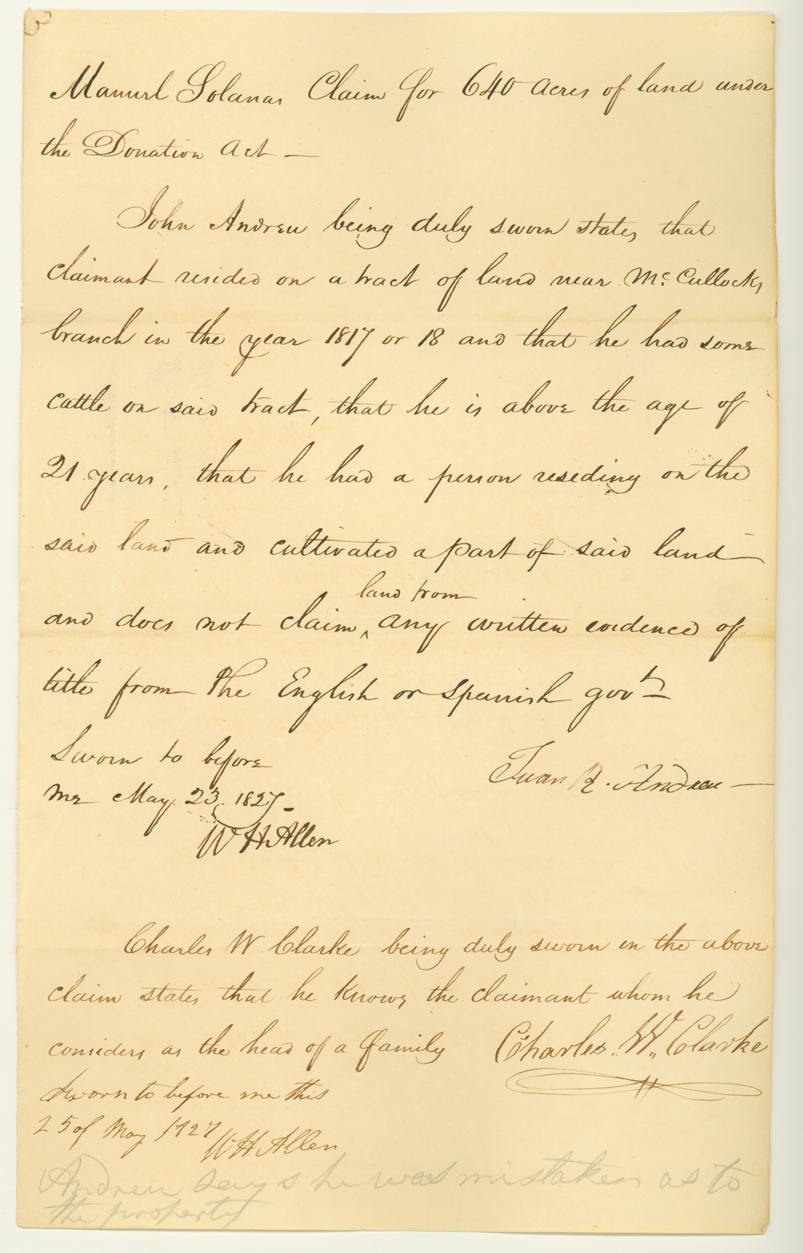 Manuel Solanas Claim for 640 acres of land under
the Donation Act —
John Andreu being duly sworn states that
claimant resided on a tract of land near McCullocks
branch in the year 1817 or 18 and that he had some
cattle on said tract, that he is above the age of
21 years, that he had a person reseding on the
said land and cultivated a part of said land —
land from
and does not claim ‸ any written evidence of
title from the English or Spanish govt —
Sworn to before
me May 23, 1827 —
W H Allen
Juan Andreu —
Charles W Clarke being duly sworn in the above
claim states that he knows the claimant whom he
considers as the head of a family
Charles. W. Clarke
Sworn to before me this
25 of May 1827
W H Allen
Andreu says he was mistaken as to
the property